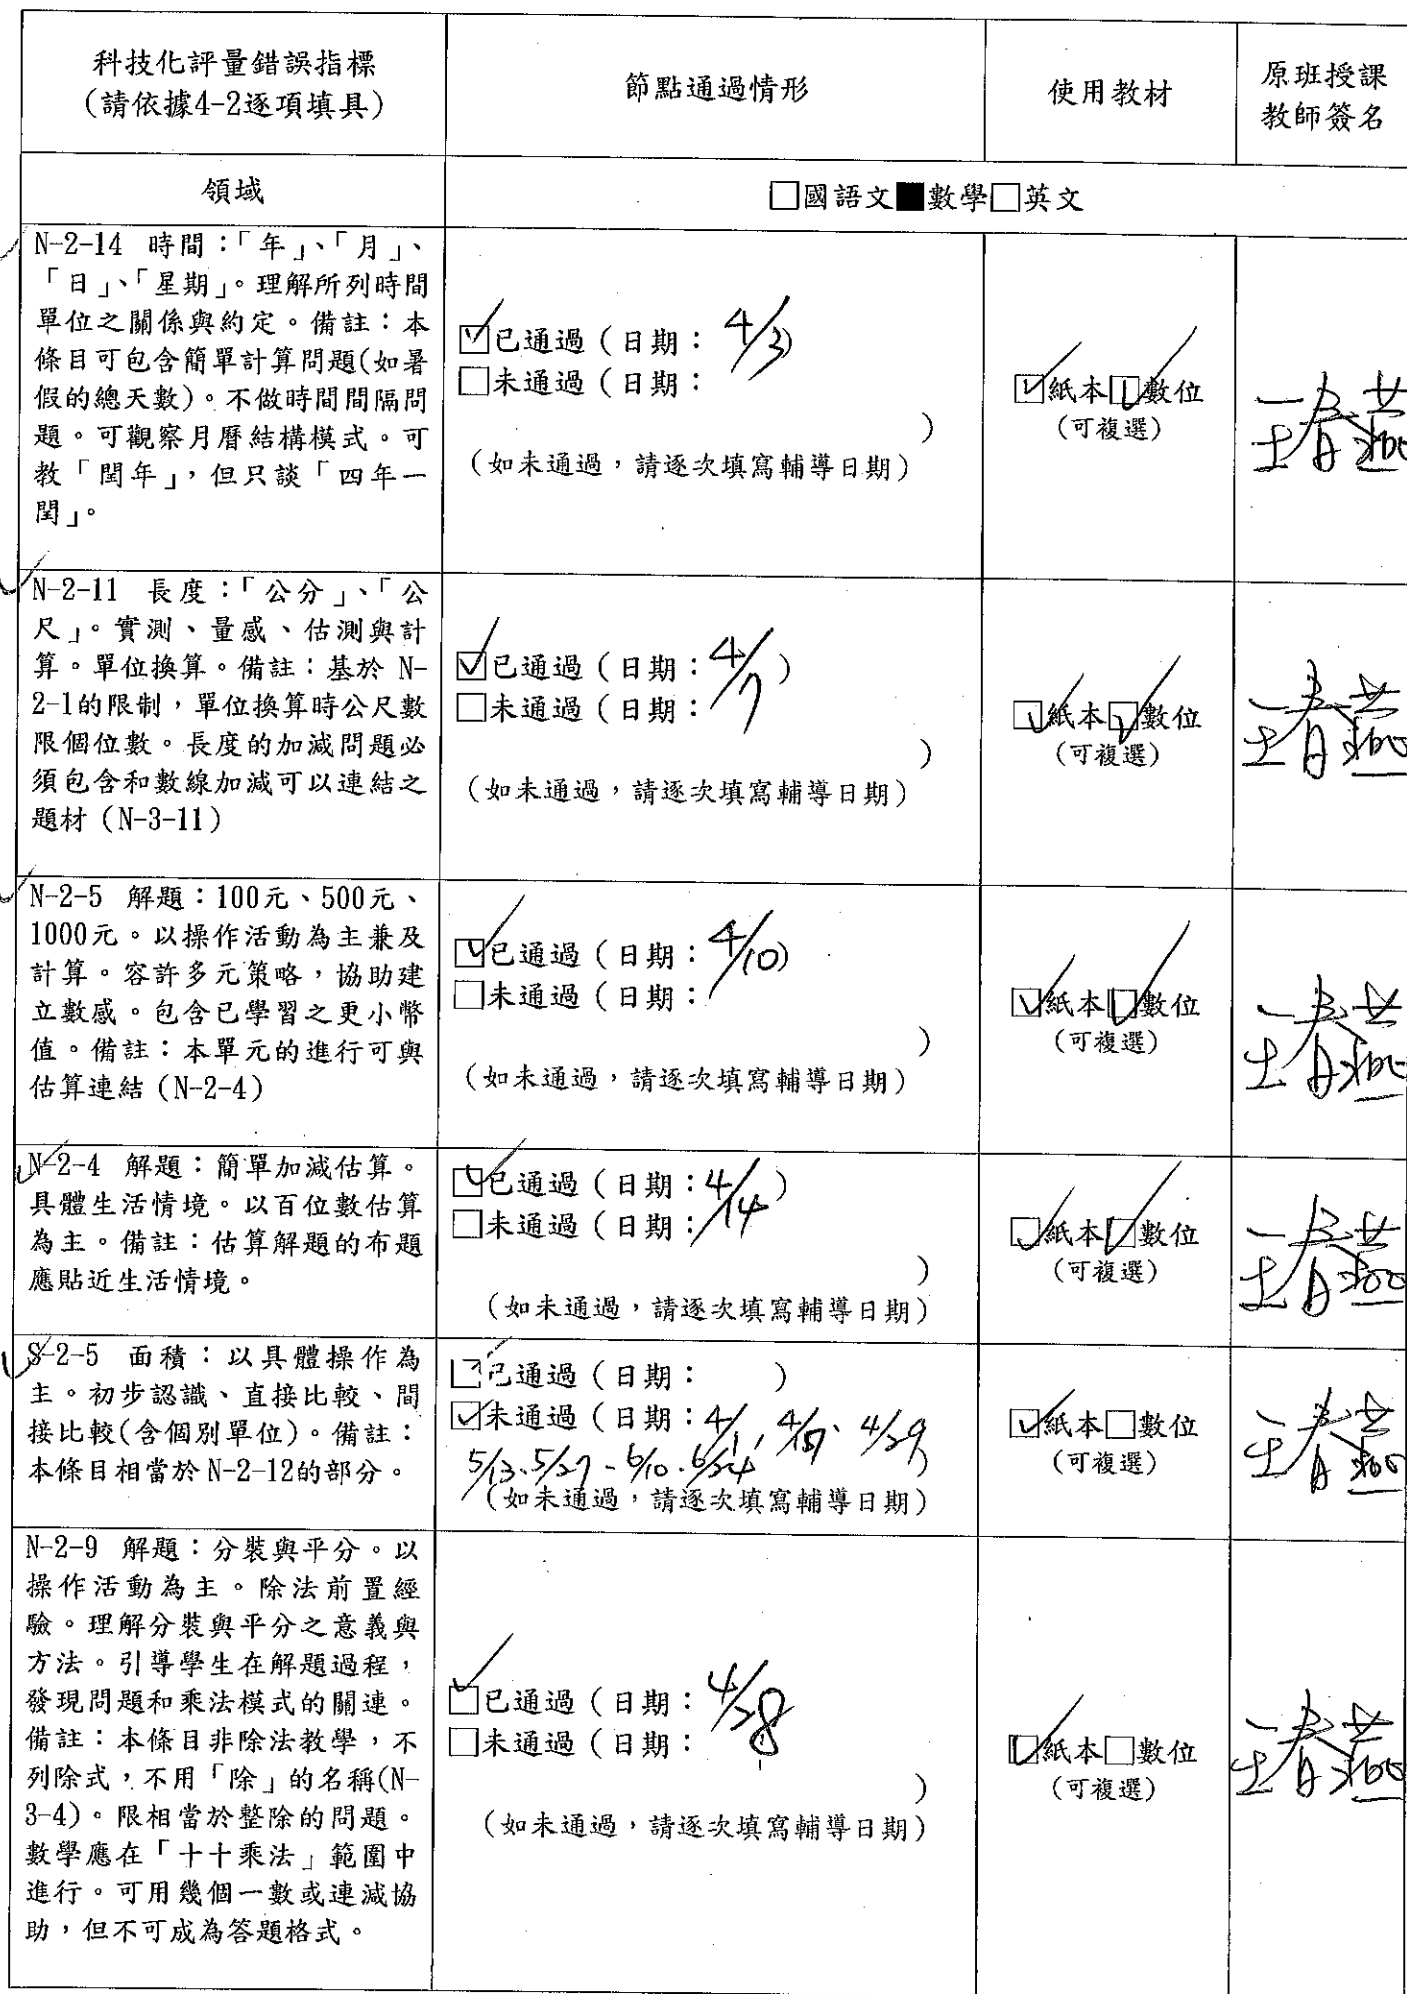 科技化評量錯誤指標
(請依據4-2逐項填具)
節點通過情形
使用教材
原班授課
教師簽名
領域
□國語文■數學□英文
N-2-14 時間：「年」、「月」、
「日」、「星期」。理解所列時間
單位之關係與約定。備註：本
條目可包含簡單計算問題(如暑
假的總天數)。不做時間間隔問
題。可觀察月曆結構模式。可
教「閏年」，但只談「四年一
閏」。
☑已通過（日期：4/3）
□未通過（日期：
）
（如未通過，請逐次填寫輔導日期）
☑紙本☑數位
(可複選)
N-2-11 長度：「公分」、「公
尺」。實測、量感、估測與計
算。單位換算。備註：基於 N-
2-1的限制，單位換算時公尺數
限個位數。長度的加減問題必
須包含和數線加減可以連結之
題材（N-3-11）
☑已通過（日期：4/7）
□未通過（日期：
）
（如未通過，請逐次填寫輔導日期）
☑紙本☑數位
(可複選)
N-2-5 解題：100元、500元、
1000元。以操作活動為主兼及
計算。容許多元策略，協助建
立數感。包含已學習之更小幣
值。備註：本單元的進行可與
估算連結（N-2-4）
☑已通過（日期：4/10）
□未通過（日期：
）
（如未通過，請逐次填寫輔導日期）
☑紙本☑數位
(可複選)
N-2-4 解題：簡單加減估算。
具體生活情境。以百位數估算
為主。備註：估算解題的布題
應貼近生活情境。
☑已通過（日期：4/14）
□未通過（日期：
）
（如未通過，請逐次填寫輔導日期）
☑紙本☑數位
(可複選)
S-2-5 面積：以具體操作為
主。初步認識、直接比較、間
接比較(含個別單位)。備註：
本條目相當於N-2-12的部分。
□已通過（日期： ）
☑未通過（日期：4/1、 4/29
5/13、5/27、6/10、6/24 ）
（如未通過，請逐次填寫輔導日期）
☑紙本□數位
(可複選)
N-2-9 解題：分裝與平分。以
操作活動為主。除法前置經
驗。理解分裝與平分之意義與
方法。引導學生在解題過程，
發現問題和乘法模式的關連。
備註：本條目非除法教學，不
列除式，不用「除」的名稱(N-
3-4)。限相當於整除的問題。
數學應在「十十乘法」範圍中
進行。可用幾個一數或連減協
助，但不可成為答題格式。
☑已通過（日期：4/28
□未通過（日期：
）
（如未通過，請逐次填寫輔導日期）
☑紙本□數位
(可複選)